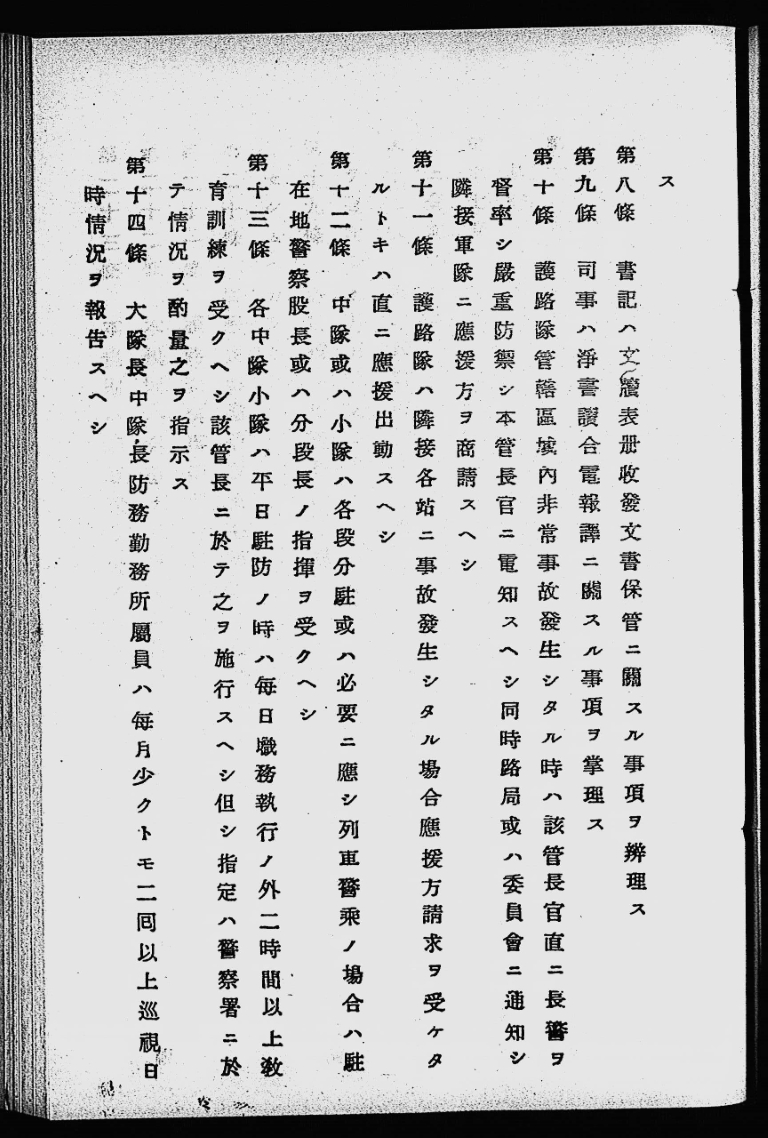 ス
第八條　書記ハ文牘表册收發文書保管ニ關スル事項ヲ辨理ス
第九條　司事ハ淨書讀合電報譯ニ關スル事項ヲ掌理ス
第十條　護路隊管轄區域內非常事故發生シタル時ハ該管長官直ニ長警ヲ
督率シ嚴重防禦シ本管長官ニ電知スヘシ同時路局或ハ委員會ニ通知シ
隣接軍隊ニ應援方ヲ商請スヘシ
第十一條　護路隊ハ隣接各站ニ事故發生シタル場合應援方請求ヲ受ケタ
ルトキハ直ニ應援出動スヘシ
第十二條　中隊或ハ小隊ハ各段分駐或ハ必要ニ應シ列車警乘ノ場合ハ駐
在地警察股長或ハ分段長ノ指揮ヲ受クヘシ
第十三條　各中隊小隊ハ平日駐防ノ時ハ每日職務執行ノ外二時間以上敎
育訓練ヲ受クヘシ該管長ニ於テ之ヲ施行スヘシ但シ指定ハ警察署ニ於
テ情況ヲ酌量之ヲ指示ス
第十四條　大隊長中隊長防務勤務所屬員ハ每月少クトモ二囘以上巡視日
時情況ヲ報告スヘシ